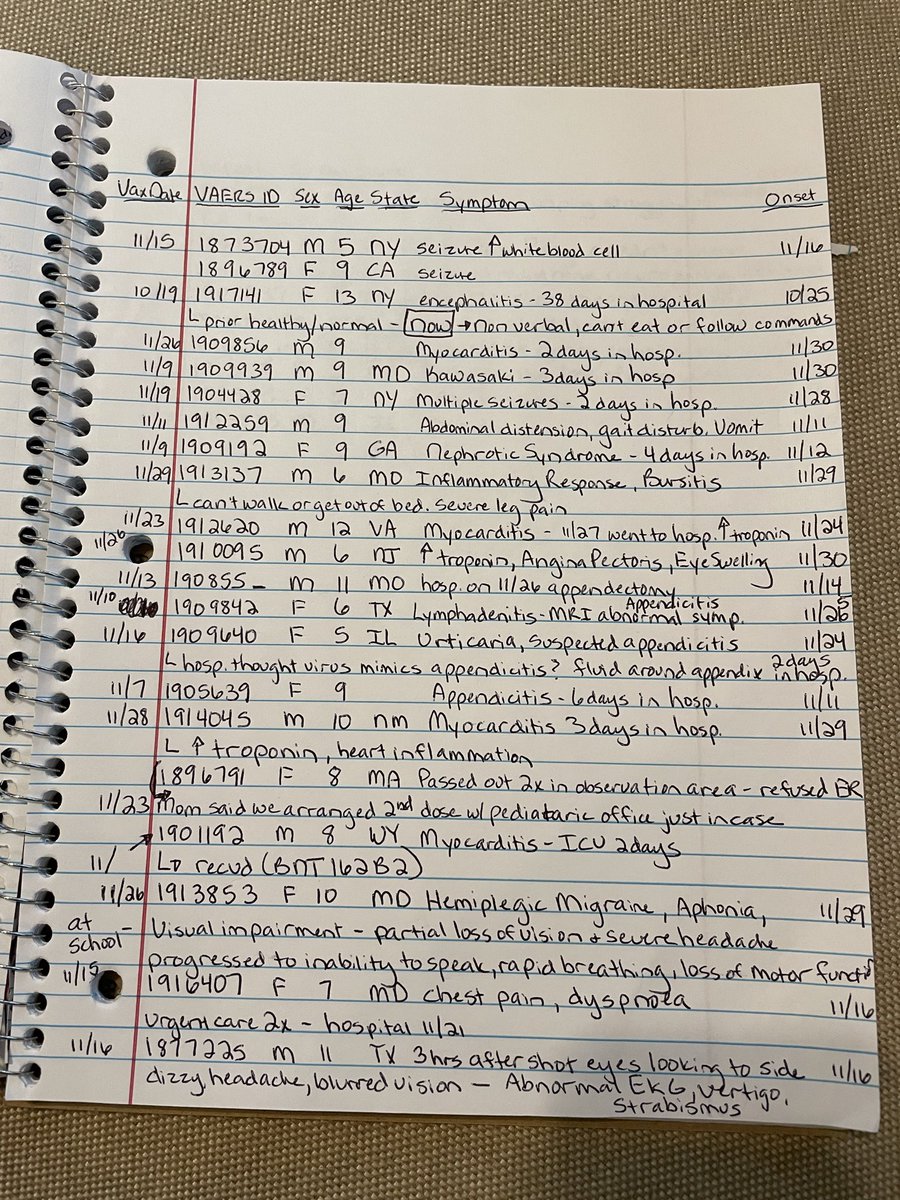 Vax Date VAERS ID Sex Age State Symptom Onset
11/15 1873704 M 5 NY seizure ↑ white blood cell 11/16
1896789 F 9 CA seizure
10/19 1917141 F 13 NY encephalitis - 38 days in hospital 10/25
└ prior healthy/normal - now → Non verbal, cant eat or follow commands
11/26 1909856 M 9 Myocarditis - 2 days in hosp. 11/30
11/9 1909939 M 9 MD Kawasaki - 3 days in hosp 11/30
11/19 1904428 F 7 NY Multiple seizures - 2 days in hosp. 11/28
11/11 1912259 M 9 Abdominal distension, gait disturb. Vomit 11/11
11/9 1909192 F 9 GA Nephrotic Syndrome - 4 days in hosp. 11/12
11/29 1913137 M 6 MO Inflammatory Response, Bursitis 11/29
└ can't walk or get out of bed. Severe leg pain
11/23 1912620 M 12 VA Myocarditis - 11/27 went to hosp. ↑ troponin 11/24
11/26 1910095 M 6 NJ ↑ troponin, Angina Pectoris, Eye Swelling 11/30
11/13 190855_ M 11 MO hosp. on 11/26 appendectomy 11/14
11/10 1909842 F 6 TX Lymphadenitis - MRI abnormal symp. Appendicitis 11/25
11/16 1909640 F 5 IL Urticaria, suspected appendicitis 11/24
└ hosp. thought virus mimics appendicitis? fluid around appendix 2 days in hosp.
11/7 1905639 F 9 Appendicitis - 6 days in hosp. 11/11
11/28 1914045 M 10 NM Myocarditis 3 days in hosp. 11/29
└ ↑ troponin, heart inflammation
1896791 F 8 MA Passed out 2x in observation area - refused ER
11/23 Mom said we arranged 2nd dose w/ pediataric office just in case
1901192 M 8 WY Myocarditis - ICU 2 days
11/ └ recvd (BNT162B2)
11/26 1913853 F 10 MO Hemiplegic Migraine, Aphonia, 11/29
at school - Visual impairment - partial loss of vision + severe headache
progressed to inability to speak, rapid breathing, loss of motor functi
11/15 1916407 F 7 MD chest pain, dyspnoea 11/16
Urgent care 2x - hospital 11/21
11/16 1877225 M 11 TX 3 hrs after shot eyes looking to side 11/16
dizzy, headache, blurred vision - Abnormal EKG, vertigo,
Strabismus